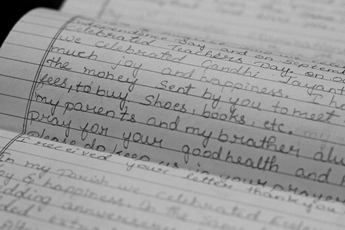 Independence day, and on Septem
celebrated Teachers Day, on
we celebrated Gandhi Jayanti
much joy and happiness. I ha
the money sent by you to meet
fees, to buy, shoes, books, etc.
my parents and my brother alw
pray for your good health and h
please do keep us in your prayers
I received your letter thank you
in my parish we celebrated
y & happiness. In the same
edding anniversary